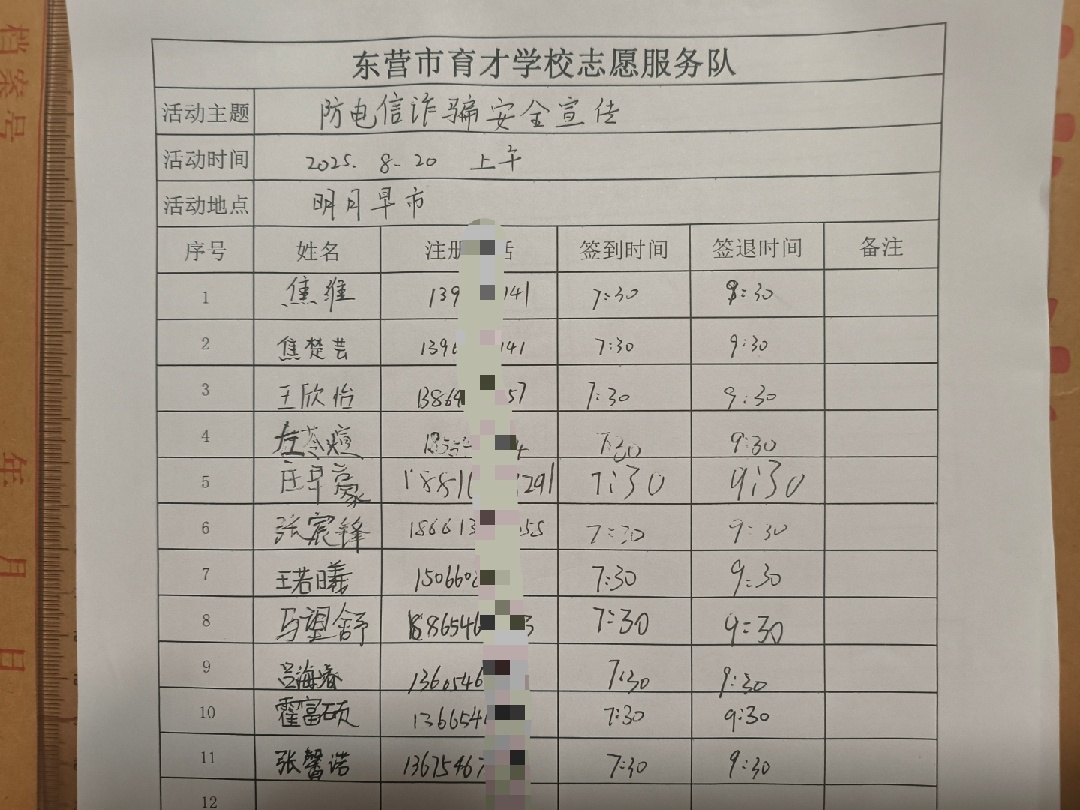 东营市育才学校志愿服务队
活动主题 防电信诈骗安全宣传
活动时间 2025. 8-20 上午
活动地点 明月早市
序号 姓名 注册 话 签到时间 签退时间 备注
1 焦维 139 141 7:30 9:30
2 焦楚芸 139 141 7:30 9:30
3 王欣怡 1386 57 7:30 9:30
4 7:30 9:30
5 庄早蒙 1881 291 7:30 9:30
6 张宸锋 186613 55 7:30 9:30
7 王若曦 150660 7:30 9:30
8 马望舒 1886546 3 7:30 9:30
9 吕海睿 1360546 7:30 9:30
10 霍富硕 136654 7:30 9:30
11 张馨诺 1367546 7:30 9:30
12
档案号
年
月
日